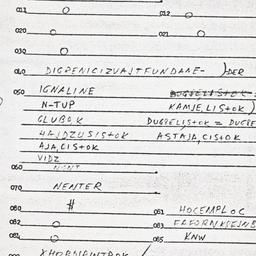 011 O 012 O
020 O 021 O
030 O
040 DIGPENICIZVAJTFUNDANE- )DER
050 IGNALINE
N-TUP KAMJE,LIStOK)
GLUBOK DUGBELIStOK = DUGBE
HAJDZUSIStOK ASTAJA,CIStOK
AJA,CIStOK
VIDZ
060
070 NENTER
080 # 081 HOCEMPLOC
082 O 083
084 O 085 KNW